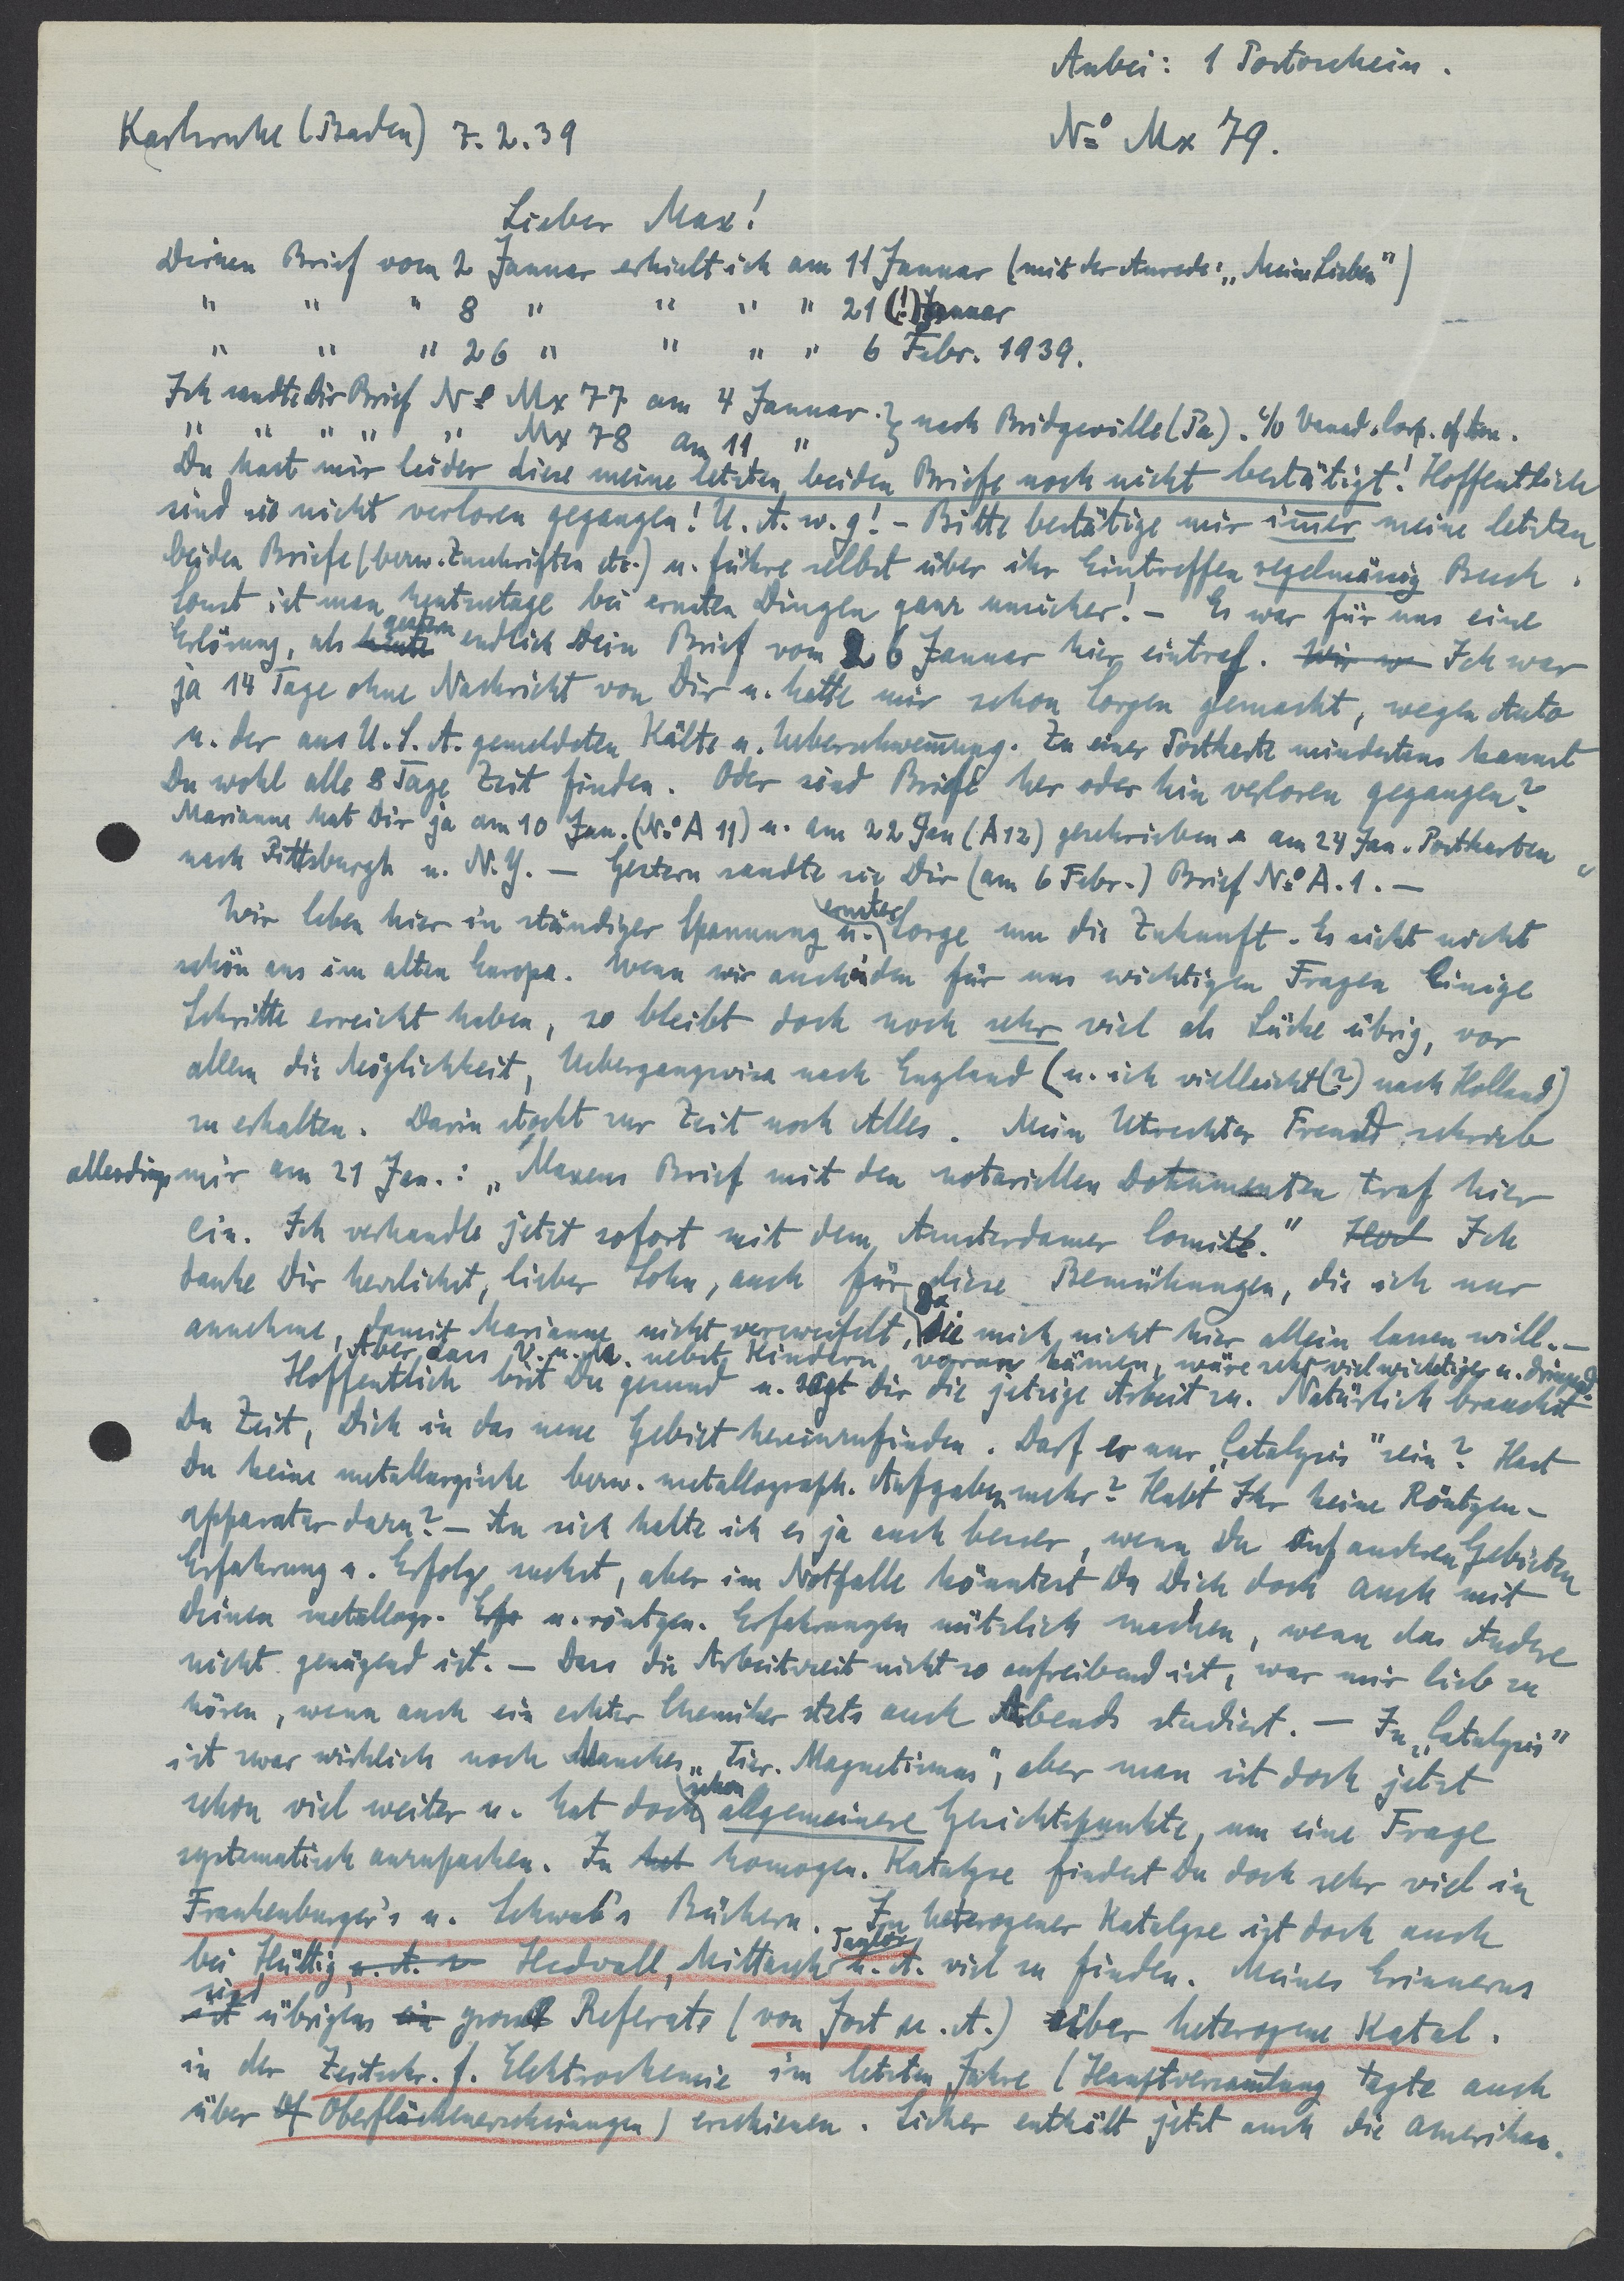 Anbei: 1 Portoschein.
Karlsruhe (Baden) 7.2.39
No Mx 79.
Lieber Max!
Deinen Brief vom 2 Januar erhielt ich am 11 Januar (mit der Anrede: „Meine Lieben")
" " " 8 " " " " 21 (!) Januar
" " " 26 " " " " 6 Febr. 1939.
Ich sandte Dir Brief No Mx 77 am 4 Januar. } nach Bridgeville (Pa). c/o Vanad. Corp. of Am.
" " " " " Mx 78 am 11 "
Du hast mir leider diese meine letzten beiden Briefe noch nicht bestätigt! Hoffentlich
sind sie nicht verloren gegangen! U. A. w. g! – Bitte bestätige mir im̅er meine letzten
beiden Briefe (bezw. Zuschriften etc.) u. führe selbst über ihr Eintreffen regelmässig Buch.
Sonst ist man heutzutage bei ernsten Dingen ganz unsicher! – Es war für uns eine
Erlösung, als heute gestern endlich Dein Brief vom 26 Januar hier eintraf. Wir w Ich war
ja 14 Tage ohne Nachricht von Dir u. hatte mir schon Sorgen gemacht, wegen Auto
u. der aus U.S.A. gemeldeten Kälte u. Ueberschwem̅ung. Zu einer Postkarte mindestens kannst
Du wohl alle 8 Tage Zeit finden. Oder sind Briefe her oder hin verloren gegangen?
Marianne hat Dir ja am 10 Jan. (No A 11) u. am 22 Jan (A 12) geschrieben u am 24 Jan. Postkarten
nach Pittsburgh u. N.Y. – Gestern sandte sie Dir (am 6 Febr.) Brief No A. 1. –
Wir leben hier in ständiger Spannung u. ernster Sorge um die Zukunft. Es sieht nicht
schön aus im alten Europa. Wenn wir auch in den für uns wichtigen Fragen Einige
Schritte erreicht haben, so bleibt doch noch sehr viel als Lücke übrig, vor
allem die Möglichkeit, Uebergangsvisa nach England (u. ich vielleicht (?) nach Holland)
zu erhalten. Darin stockt zur Zeit noch Alles. Mein Utrechter Freund schrieb
allerdings mir am 21 Jan.: „Maxens Brief mit den notariellen Dokumenten traf hier
ein. Ich verhandle jetzt sofort mit dem Amsterdamer Comité." Ich
danke Dir herzlichst, lieber Sohn, auch für diese Bemühungen, die ich nur
annehme, damit Marianne nicht verzweifelt, da die mich nicht hier allein lassen will. –
Aber dass V. u. M. nebst Kindern voran kämen, wäre sehr viel wichtiger u. dringend.
Hoffentlich bist Du gesund u. sagt Dir die jetzige Arbeit zu. Natürlich brauchst
Du Zeit, Dich in das neue Gebiet hereinzufinden. Darf es nur „Catalysis" sein? Hast
Du keine metallurgische bezw. metallograph. Aufgaben mehr? Habt Ihr keine Röntgen-
apparatur dazu? – An sich halte ich es ja auch besser, wenn Du auf anderen Gebieten
Erfahrung u. Erfolge suchst, aber im Notfalle könntest Du Dich doch auch mit
Deinen metallogr. Erfa u. röntgen. Erfahrungen nützlich machen, wenn das Andre
nicht genügend ist. – Dass die Arbeitszeit nicht so aufreibend ist, war mir lieb zu
hören, wenn auch ein echter Chemiker stets auch Abends studiert. – In „Catalysis"
ist zwar wirklich noch Manches „Tier. Magnetismus", aber man ist doch jetzt
schon viel weiter u. hat doch schon allgemeinere Gesichtspunkte, um eine Frage
systematisch anzupacken. In het homogen. Katalyse findest Du doch sehr viel in
Frankenburger's u. Schwab's Büchern. In heterogener Katalyse ist doch auch
bei Hüttig, u. A. Hedvall, Mittasch Taylor u. A. viel zu finden. Meines Erinnerns
ist sind übrigens ein grosse Referate (von Jost u. A.) über heterogene Katal.
in der Zeitschr. f. Elektrochemie im letzten Jahre (Hauptversam̅lung tagte auch
über Oberflächenerscheinungen) erschienen. Sicher enthält jetzt auch die amerikan.